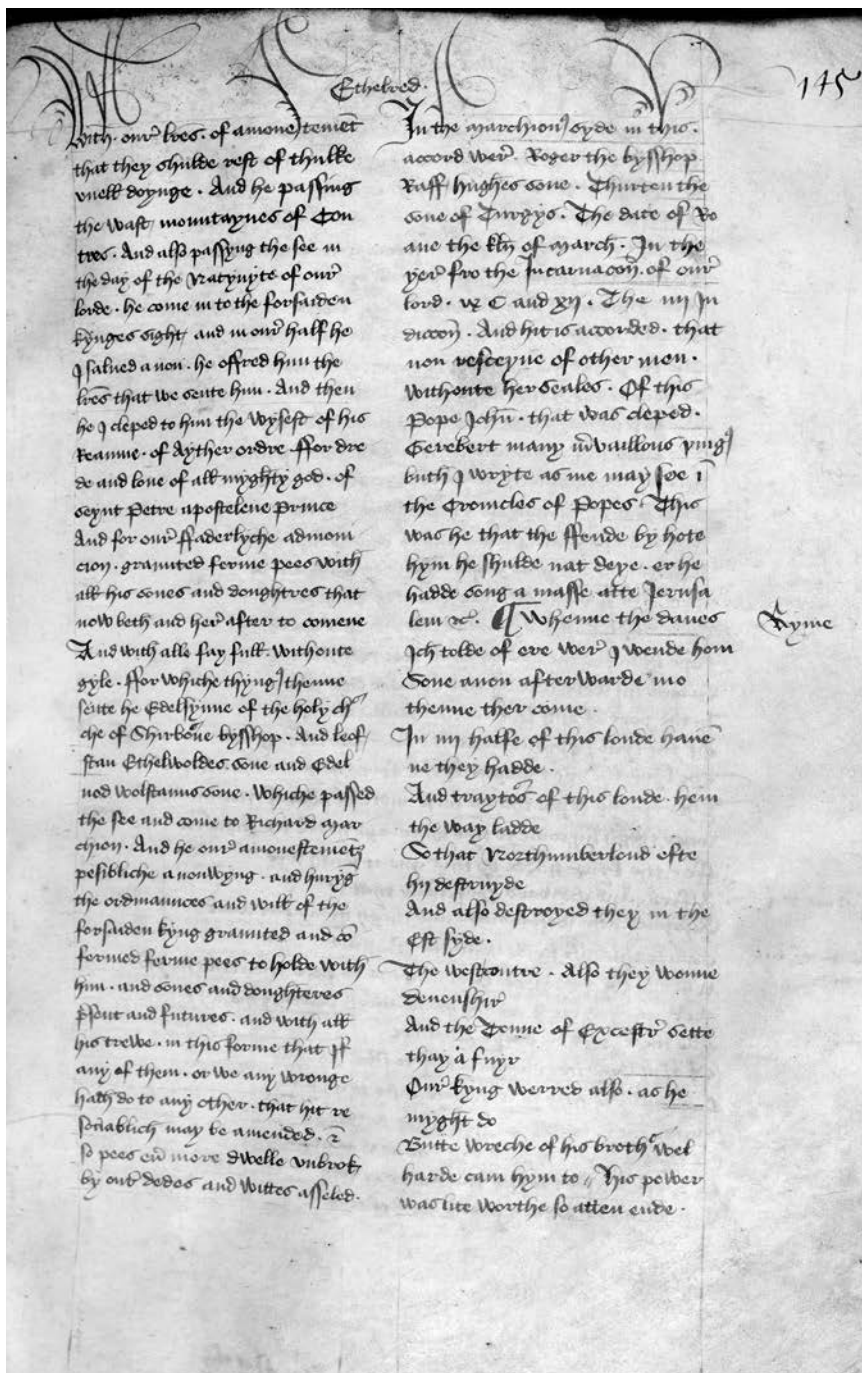 Ethelred.
145
with. our̉ lr̄es. of amonestement
that they shulde rest of thulke
vuell doynge. And he passing
the wast mountaynes of Con
tres. And also passyng the see in
the day of the Natyuyte of our̉
lorde. he come in to the forsaiden
kynges sight, and in our̉ half he
I salued anon. he offred him the
lr̄es that we sente him. And then
he I cleped to him the wysest of his
Reaume. of Ayther ordre ffor dre
de and loue of all myghty god. of
seynt Petre apostelene Prince
And for our̉ ffaderlyche admoni
cion. graunted ferme pees with
all his sones and doughtres that
now beth and her̉ after to comene
And with alle fay full. withoute
gyle. ffor whiche thynges thenne
sente he Edelsynne of the holy chir
che of Shirborne bysshop. And leof
stan Ethelwoldes sone and Edel
nod wolstanus sone. whiche passed
the see and come to Richard mar
chion. And he our̉ amonestement
pesibliche anonwyng. and huryng
the ordinaunces and will of the
forsaiden kyng graunted and con
fermed ferme pees to holde with
him. and sones and doughteres
present and futures. and with all
his trewe. in this forme that If
any of them. or we any wronge
hath do to any other. that hit re
sonablich may be amended. &
so pees euer more dwelle vnbroke
by oure dedes and wittes asseled.
In the marchiones syde in this.
accord wer̉. Roger the bysshop
Raff hughes sone. Thurten the
sone of Turgys. The date of Ro
ane the kl̄n of march. In the
yer̉ fro the Incarnacon̄. of our̉
lord. ix C and xij. The iiij In
diccon̄. And hit is accorded. that
non resceyue of other men.
withoute her seales. Of this
Pope Joh̄n. that was cleped.
Gerebert many mervaillous yinges
buth I wryte as me may see in
the Cronicles of Popes This
was he that the ffende by hote
hym he shulde nat deye. er he
hadde song a masse atte Jerusa
lem &c. ¶ Whenne the danes
Ich tolde of ere wer̉ I wende hom
Ryme
Sone anon afterwarde mo
thenne ther come.
In iiij halfe of this londe hauen
ne they hadde.
And traytors of this londe. hem
the way ladde
So that Northumberlond efte
hij destruyde
And also destroyed they in the
Est syde.
The westcontre. Also they wonne
deuenshir̉
And the Toune of Excestr̉ sette
thay a fuyr
Our̉ kyng werred also. as he
myght do
Butte wreche of his brother wel
harde cam hym to // His power
was lite worthe so atten ende.